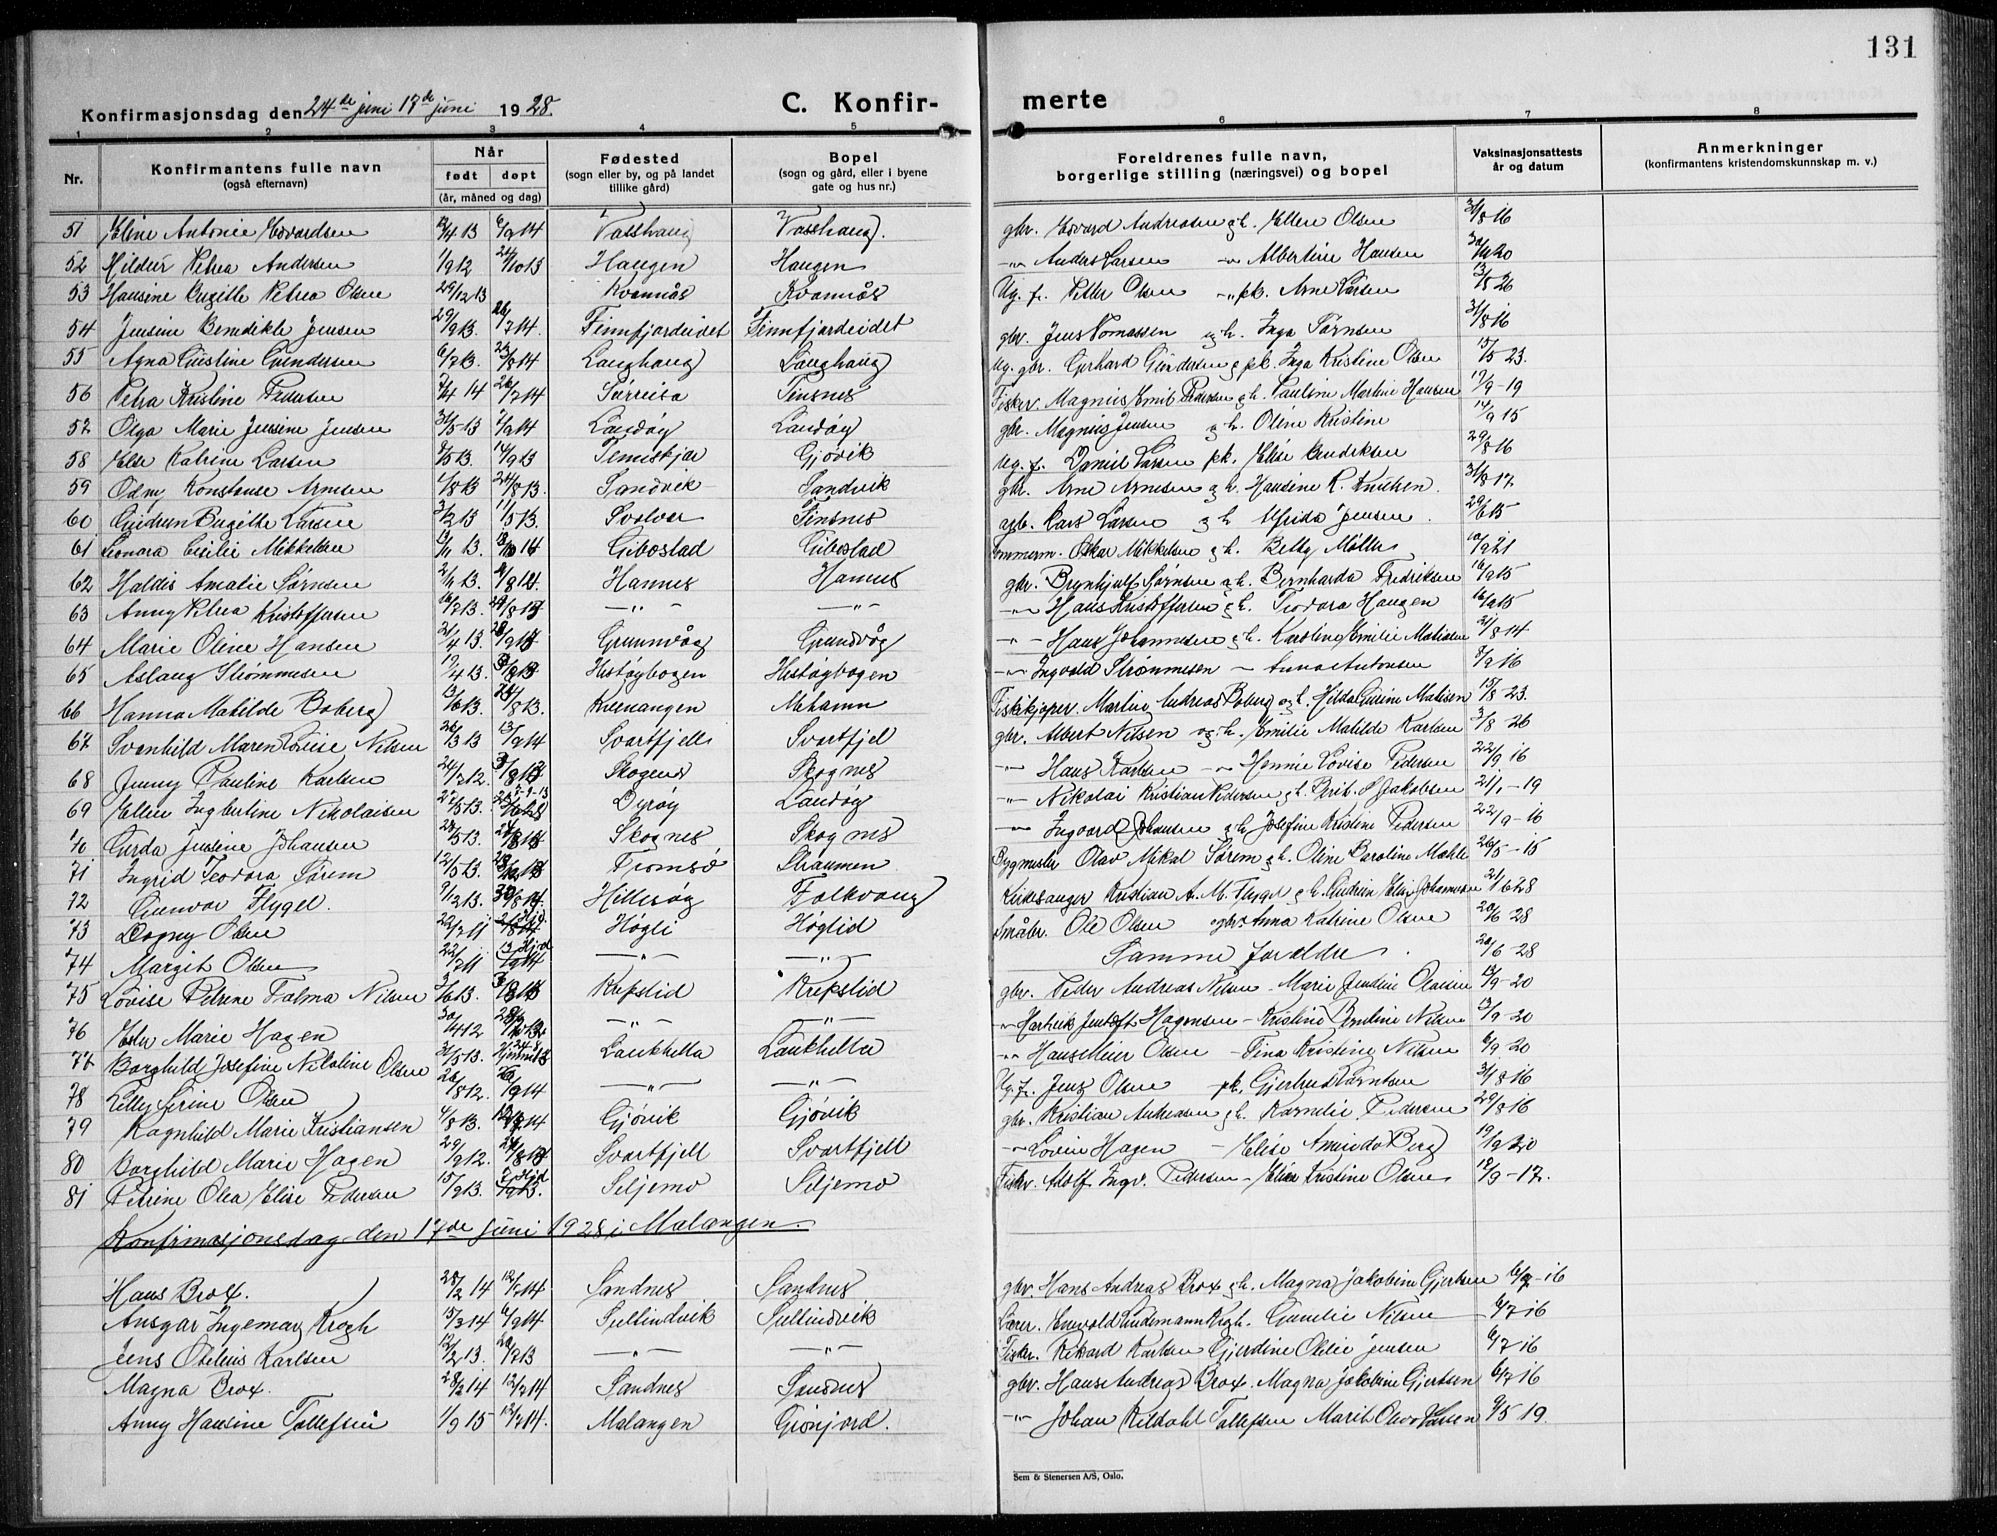 131
Konfirmasjonsdag den 24de juni 17de juni 1928.
C. Konfirmerte
1 2 3 4 5 6 7 8
Nr. Konfirmantens fulle navn (også efternavn) Når født døpt (år, måned og dag) Fødested (sogn eller by, og på landet tillike gård) Bopel (sogn og gård, eller i byene gate og hus nr.) Foreldrenes fulle navn, borgerlige stilling (næringsvei) og bopel Vaksinasjonsattests år og datum Anmerkninger (konfirmantens kristendomskunnskap m. v.)
51 Eline Antonie Edvardsen 6/9 14 Vasshaug Vasshaug. gbr. Edvard Andreasen g h. Ellen Olsen 31/8 16
52 Hildur Petra Andersen 1/9 12 26/10 13 Haugen Haugen -"- Anders Larsen -"- Albertine Hansen
53 Hansine Birgitte Petra Olsen 29/12 13 Kvannås Kvannås Ug. f. Petter Olsen -"- pk. Arne Larsen 13/8 26
54 Jensine Benedikte Jensen 29/9 13. 26/7 14. Finnfjordeidet Finnfjordeidet gbr. Jens Tomassen g h. Inga Sørnsen 31/8 16
55 Agna Gustine Gundersen 6/7 13. Laughaug Laughaug Ug. gbr. Gerhard Gundersen g pk. Inga Kristine Olsen 15/5 23.
56 Petra Kristine Pedersen 26/7 14 Sørreisa Finsnes Fisker Magnus Emil Pedersen g h. Pauline Martine Hansen 17/9-19
57 Olga Marie Jensine Jensen 31/5-13 Landøy Landøy gbr. Magnus Jensen g h. Oline Kristine 14/9 15
58 Else Katrine Larsen 14/9 13 Temskjær Gjøvik Ug. f. Daniel Larsen pk. Elise Hendriksen 29/8 16
59 Odny Konstanse Arnesen 1/8 13 24/8 13. Sandvik Sandvik gbr. Arne Arnesen g h. Hansine K. Knutsen. 31/8 17
60 Gudrun Birgitte Larsen 3/2 13 11/5 13. Svolvær Finsnes agb. Lars Larsen g h. Alfrida Jensen. 29/6 15
61 Leonora Cecilie Mikkelsen Gibostad Gibostad Tømmerm. Oskar Mikkelsen g h. Betty Møller 10/9 21
62 Haldis Amalie Sørnsen Hamnes Hamnes gbr. Brynhjulf Sørnsen g h. Bernharda Fredriksen 16/9 15
63 Anny Petra Kristoffersen 16/7 13. -"- -"- -"- Hans Kristoffersen g h. Teodora Haugen 16/9 15
64 Marie Oline Hansen 21/4 13. Grunnvåg Grundvåg -"- Hans Johannesen g h. Karoline Emilie Matisen 21/8 14
65 Aslaug Strømmesen 19/4 13. Hestøybogen Hestøybogen -"- Ingvald Strømmesen - Anna Antonsen 8/9 16
66 Hanna Matilde Boberg 13/6 13. 24/8 13. Kvenangen Mehamn Fiskekjøper. Martin Andreas Boberg og h. Hilda Gurine Matisen 15/8 23.
67 Svanhild Maren Lovise Nilsen 26/3 13 13/9 14 Svartfjell Svartfjel gbr. Albert Nilsen og h. Emilie Matilde Karlsen 31/8-26
68 Jenny Pauline Karlsen 24/2 12. Skognes Skognes -"- Hans Karlsen -"- Hennie Lovise Pedersen 22/9 16
69 Ellen Ingbertine Nikolaisen 27/5 13. Dyrøy Landøy -"- Nikolai Kristian Pedersen g h. Berit. Jakobsen 21/1-19
70 Gerda Jensine Johansen 23/5 13. Skognes Skognes -"- Ingvard Johansen g h. Josefine Kristine Pedersen 22/9-16
71 Ingrid Teodora Sørem 12/5 13. Tromsø Straumen Bygmester Olav Mikal Sørem g h. Oline Karoline Mæhle 26/5-15
72 Gunvor Flygel. 9/12 13. Hillesøy Folkvang Kirkesanger Kristian A. M. Flygel g h. Gudrun Elise Johannesen 21/6 28
73 Dagny Olsen 22/7 11 Høgli Høglid Småbr. Ole Olsen gbr Anna Katrine Olsen 20/6 28
74 Margit Olsen 22/7 11 -"- -"- Samme foreldre. 20/6-28
75 Lovise Petrine Talma Nilsen 3/6 13. Krepslid Krepslid gbr. Peder Andreas Nilsen - Marie Jendine Olaisen 13/9-20
76 Else Marie Hagen 30/4 12 -"- -"- -"- Hartvik Jentoft Hagensen - Kristine Bentine Nilsen 13/9-20
77 Borghild Josefine Nicoline Olsen 31/5 13. Laukhella Laukhella -"- Hans Meier Olsen - Tina Kristine Nilsen 6/9-20
78 Lilly Serine Olsen 26/8 12. -"- -"- Ug. f. Jens Olsen pk. Gjertrud Bærntsen 31/8 16
79 Ragnhild Marie Kristiansen 4/8 13. Gjøvik Gjøvik gbr. Kristian Andreasen g h. Kornelie Pedersen 29/8 16
80 Borghild Marie Hagen 29/9 12. Svartfjell Svartfjell -"- Lovin Hagen - Elise Aminda Berg 19/9 20
81 Petrine Olea Elise Pedersen 15/9 13. Siljemo Siljemo Fisker. Adolf Ingv. Pedersen - Elise Kristine Olsen 12/9-17.
Konfirmasjonsdag den 17de juni 1928 i Malangen.
Hans Brox. 28/2 14 Sandnes Sandnes gbr. Hans Andreas Brox g h. Magna Jakobine Gjertsen 6/7-16
Ansgar Ingemar Krogh 15/3 14 6/9 14 Sultindvik Sultindvik Lærer. Enevold Lindemann Krogh. Gunelie Nilsen 6/7-16
Jens Otelius Karlsen 12/2 13. 20/7 13 -"- -"- Fisker. Rikard Karlsen Gjerdine Otelie Jensen 6/7-16
Magna Brox. 28/2 14 12/7 14 Sandnes Sandnes gbr. Hans Andreas Brox. Magna Jakobine Gjertsen 6/7-16
Anny Hansine Tollefsen 1/9 15 12/7 14. Malangen -"- Johan Kildahl Tollefsen Marit Olava Hansen 9/5 19.
Sem & Stenersen A/S, Oslo.